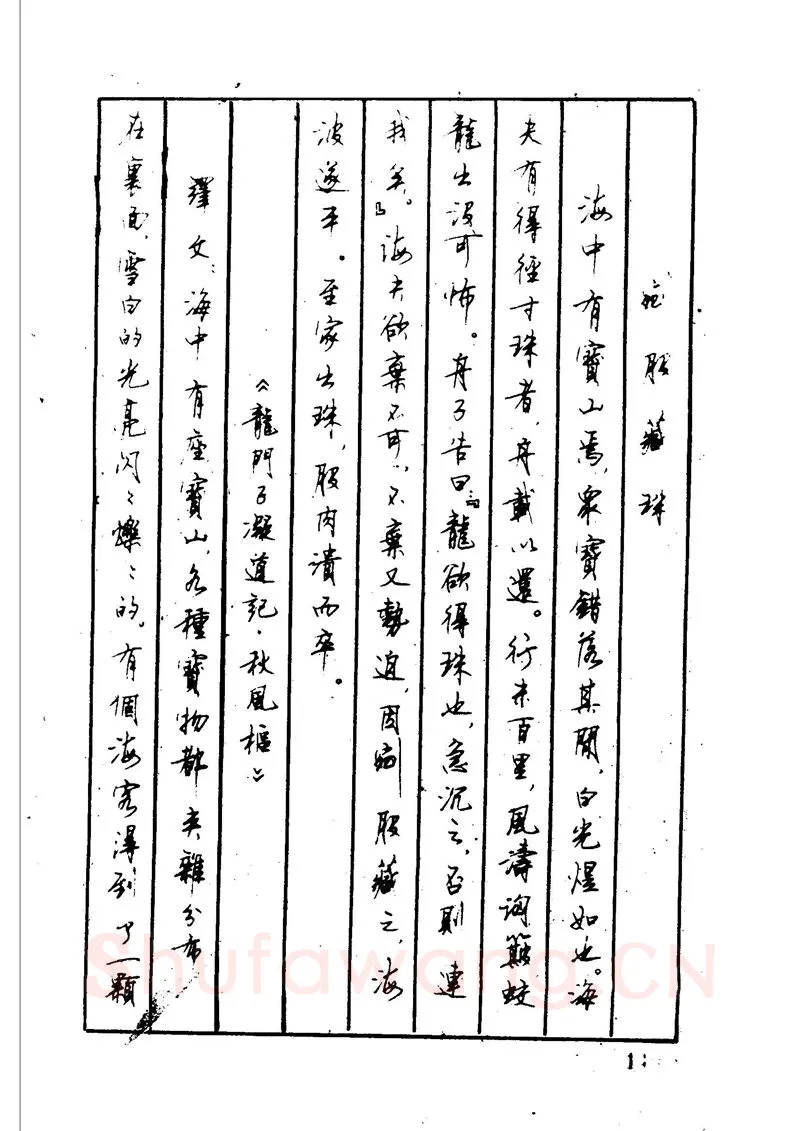 剜股藏珠
海中有寶山焉，衆寶錯落其間，白光煜如也。海
夫有得徑寸珠者，舟載以還。行未百里，風濤洶簸，蛟
龍出沒可怖。舟子告曰：“龍欲得珠也，急沉之，否則連
我矣。”海夫欲棄不可，不棄又勢迫，因剜股藏之，海
波遂平。至家出珠，股肉潰而卒。
《龍門子凝道記·秋風樞》
譯文：海中有座寶山，各種寶物都夾雜分布
在裏面，雪白的光亮閃閃燦燦的。有個海客得到了一顆
Shufawang.CN
1